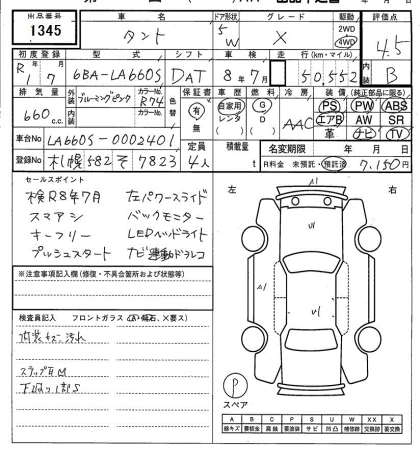 出品番号 車名 ドア形状 グレード 駆動 評価点
1345 タント 5 W X 2WD 4WD 4.5
初度登録 型式 シフト 車検 走行(km・マイル) 内装
R 1/7 6BA-LA660S DAT 8年7月 50,552 B
排気量 外装 ブルーミングピンク カラーNo. R74 色替 保証書 車歴 燃料 冷房 装備(純正部品に限る)
660 c.c. 内装 カラーNo. 有 無 自家用 レンタ ( ) G D ( ) AAC PS PW ABS
エアB AW SR
革 ナビ TV
車台No LA660S-0002401 定員 積載量 名変期限 年 月 日
登録No 札幌 582 そ 7823 4人 t R料金 未預託・預託済 7,150円
セールスポイント
検R8年7月 左パワースライド
スマアシ バックモニター
キーフリー LEDヘッドライト
プッシュスタート ナビ連動ドラレコ
左 右
A1
U1
A1 U1
※注意事項記入欄(修復・不具合箇所および状態等)
検査員記入 フロントガラス
内装キズ・汚れ
P
スペア
A B C P S U W X XX X
線キズ 要板金 腐蝕 要塗装 サビ 凹凸 補修跡 交換跡 要交換